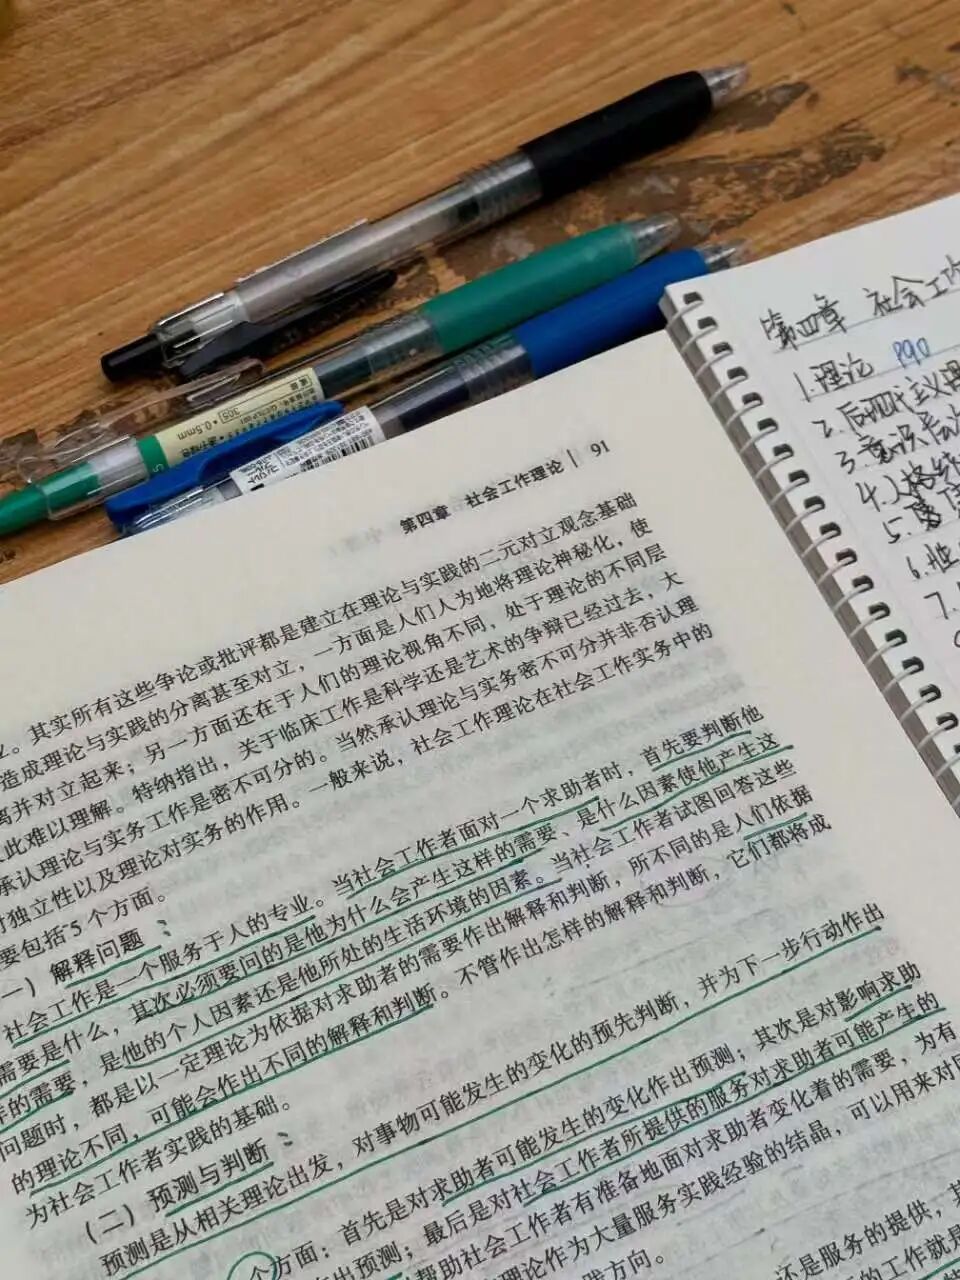 0.5mm
第四章 社会工作理论 | 91
。其实所有这些争论或批评都是建立在理论与实践的二元对立观念基础
造成理论与实践的分离甚至对立，一方面是人们人为地将理论神秘化，使
离并对立起来；另一方面还在于人们的理论视角不同，处于理论的不同层
此难以理解。特纳指出，关于临床工作是科学还是艺术的争辩已经过去，大
承认理论与实务工作是密不可分的。当然承认理论与实务密不可分并非否认理
对独立性以及理论对实务的作用。一般来说，社会工作理论在社会工作实务中的
要包括5个方面。
一）解释问题：
社会工作是一个服务于人的专业。当社会工作者面对一个求助者时，首先要判断他
需要是什么，其次必须要问的是他为什么会产生这样的需要、是什么因素使他产生这
样的需要，是他的个人因素还是他所处的生活环境的因素。当社会工作者试图回答这些
问题时，都是以一定理论为依据对求助者的需要作出解释和判断，所不同的是人们依据
的理论不同，可能会作出不同的解释和判断。不管作出怎样的解释和判断，它们都将成
为社会工作者实践的基础。
（二）预测与判断：
预测是从相关理论出发，对事物可能发生的变化的预先判断，并为下一步行动作出
个方面：首先是对求助者可能发生的变化作出预测；其次是对影响求助
出预测；最后是对社会工作者所提供的服务对求助者可能产生的
帮助社会工作者有准备地面对求助者变化着的需要，为有
理论作为大量服务实践经验的结晶，可以用来对
践方向。
还是服务的提供，其
的工作就是
第四章 社会工作
1.理论 P90
2.后现代主义
3.意识
4.
5.
6.性
7.